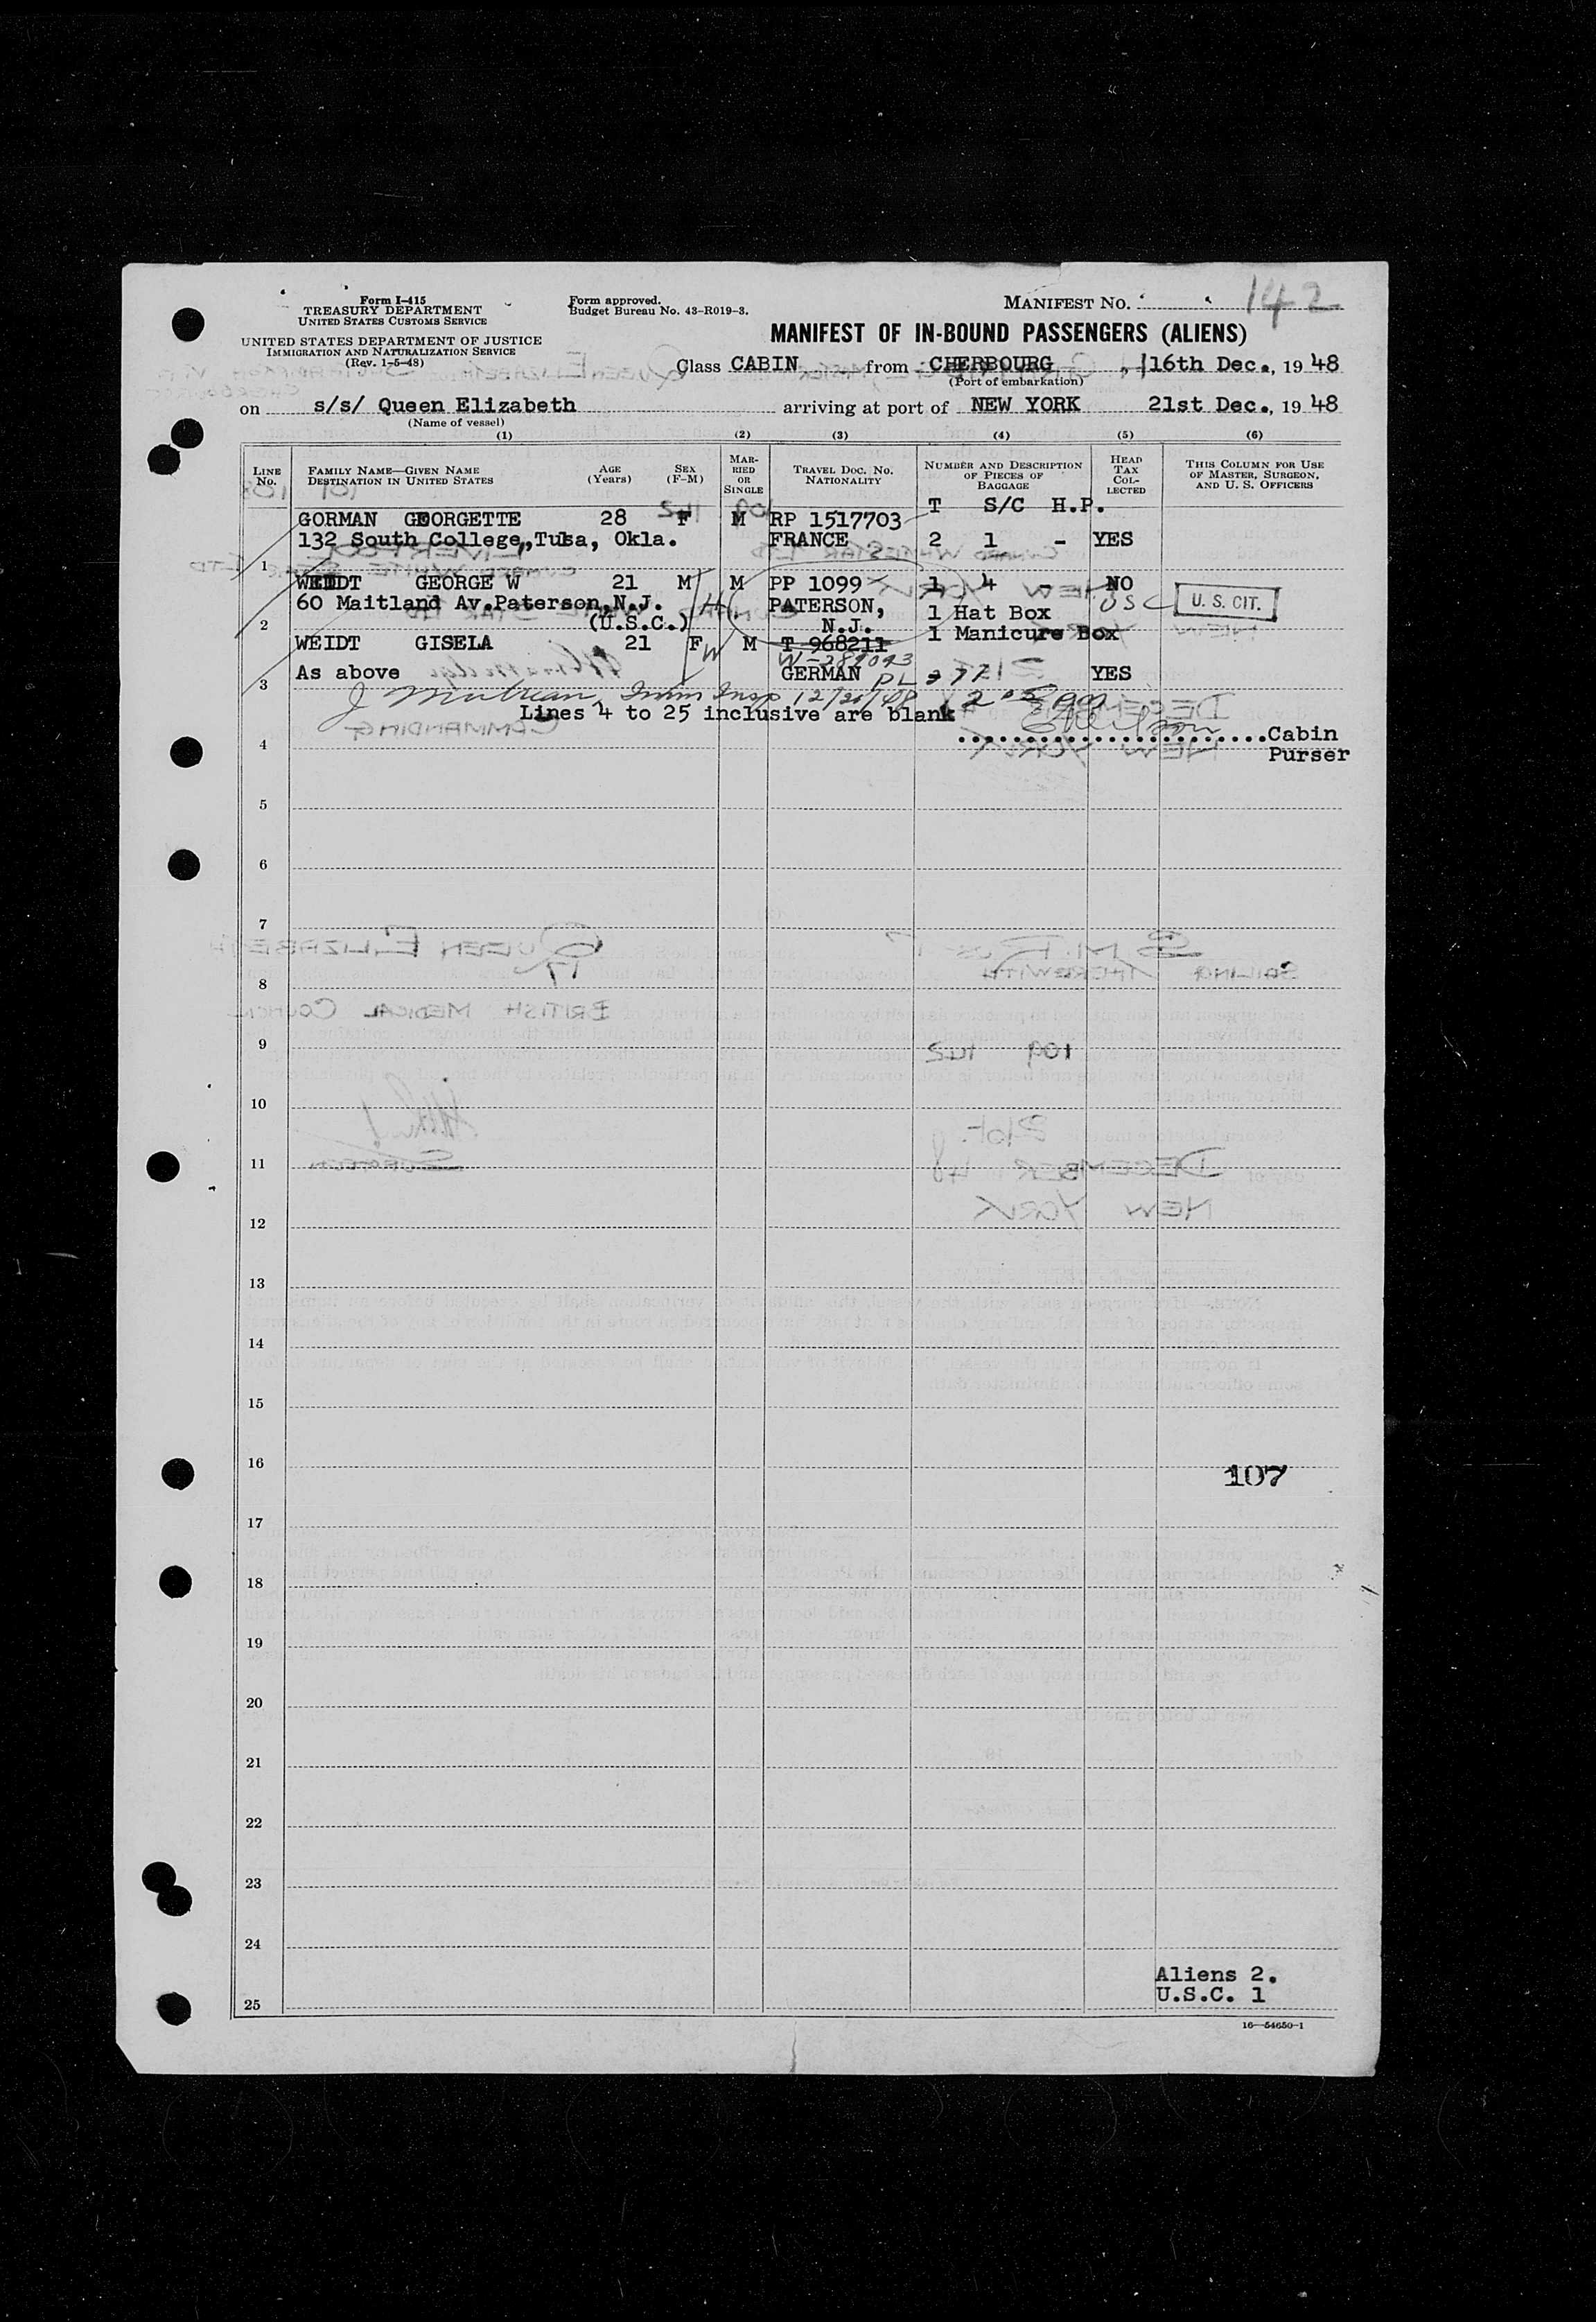 Form I-415
TREASURY DEPARTMENT
UNITED STATES CUSTOMS SERVICE
UNITED STATES DEPARTMENT OF JUSTICE
IMMIGRATION AND NATURALIZATION SERVICE
(Rev. 1-5-48)
Form approved.
Budget Bureau No. 43-R019-3.
MANIFEST NO. 142
MANIFEST OF IN-BOUND PASSENGERS (ALIENS)
Class CABIN from CHERBOURG, 16th Dec., 19 48
(Port of embarkation)
on s/s/ Queen Elizabeth arriving at port of NEW YORK 21st Dec., 19 48
(Name of vessel)
(1) (2) (3) (4) (5) (6)
LINE No.
FAMILY NAME—GIVEN NAME
DESTINATION IN UNITED STATES
AGE (Years)
SEX (F-M)
MARRIED OR SINGLE
TRAVEL DOC. NO.
NATIONALITY
NUMBER AND DESCRIPTION OF PIECES OF BAGGAGE
HEAD TAX COLLECTED
THIS COLUMN FOR USE OF MASTER, SURGEON, AND U. S. OFFICERS
T S/C H.P.
GORMAN GEORGETTE 28 F M RP 1517703
132 South College,,Tulsa, Okla. FRANCE 2 1 - YES
1
WEIDT GEORGE W 21 M H M PP 1099 1 4 - NO
60 Maitland Av.Paterson,N.J. PATERSON, 1 Hat Box USC U. S. CIT.
2 (U.S.C.) N.J. 1 Manicure Box
WEIDT GISELA 21 F W M T 968211
W-289093
As above GERMAN PL 271 YES
3
Imm Insp 12/21/48
Lines 4 to 25 inclusive are blank
Cabin
Purser
4
5
6
7
8
9
10
11
12
13
14
15
16
107
17
18
19
20
21
22
23
24
Aliens 2.
U.S.C. 1
25
16—54650-1